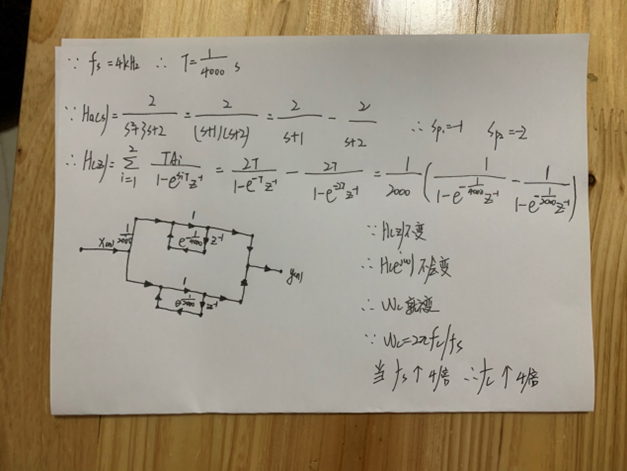 ∵ fs=4kHz ∴ T=1/4000 s
∵ Ha(s)=2/(s²+3s+2)=2/((s+1)(s+2))=2/(s+1)-2/(s+2) ∴ Sp₁=-1 Sp₂=-2
∴ H(z)=∑_{i=1}^{2} TAi/(1-e^{siT}z⁻¹)=2T/(1-e^{-T}z⁻¹)-2T/(1-e^{-2T}z⁻¹)=1/2000(1/(1-e^{-1/4000}z⁻¹)-1/(1-e^{-1/2000}z⁻¹))
X(n) 1/2000 1 e^{-1/4000} z⁻¹
1 z⁻¹ y(n)
∵ H(z)不变
∴ H(e^{jω})不会变
∴ ωc就不变
∵ ωc=2πfc/fs
当fs↑4倍 ∴fc↑4倍